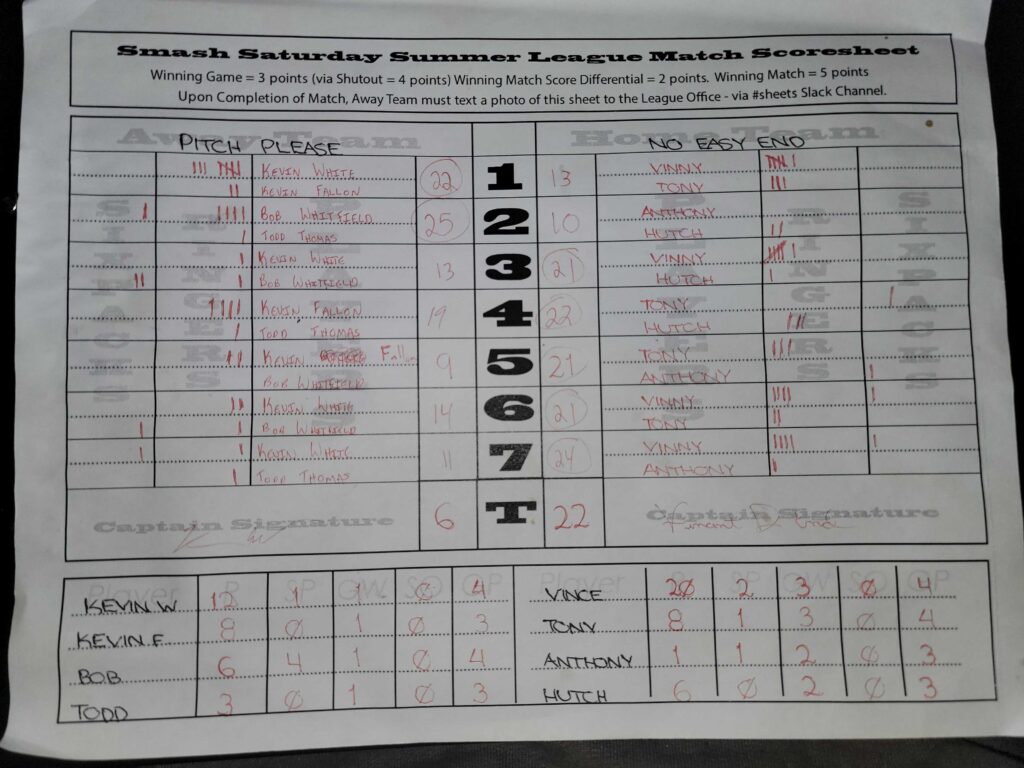 Smash Saturday Summer League Match Scoresheet
Winning Game = 3 points (via Shutout = 4 points) Winning Match Score Differential = 2 points. Winning Match = 5 points
Upon Completion of Match, Away Team must text a photo of this sheet to the League Office - via #sheets Slack Channel.
Away Team Home Team
PITCH PLEASE NO EASY END
SIXPACKS RINGERS PLAYERS PLAYERS RINGERS SIXPACKS
KEVIN WHITE 22 1 13 VINNY
KEVIN FALLON TONY
BOB WHITFIELD 25 2 10 ANTHONY
TODD THOMAS HUTCH
KEVIN WHITE 13 3 21 VINNY
BOB WHITFIELD HUTCH
KEVIN FALLON 19 4 22 TONY
TODD THOMAS HUTCH
KEVIN Fallon 9 5 21 TONY
BOB WHITFIELD ANTHONY
KEVIN WHITE 14 6 21 VINNY
BOB WHITFIELD TONY
KEVIN WHITE 11 7 24 VINNY
TODD THOMAS ANTHONY
Captain Signature 6 T 22 Captain Signature
Player R SP GW SO GP Player R SP GW SO GP
KEVIN W 12 1 1 0 4 VINCE 20 2 3 0 4
KEVIN F 8 0 1 0 3 TONY 8 1 3 0 4
BOB 6 4 1 0 4 ANTHONY 1 1 2 0 3
TODD 3 0 1 0 3 HUTCH 6 0 2 0 3